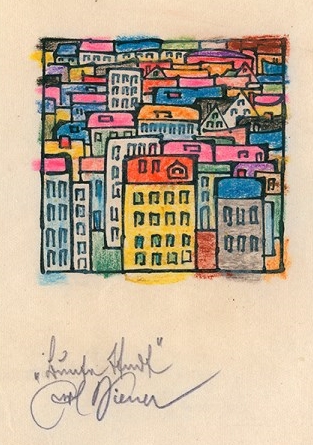 „Bunte Stadt“
Carl Diener